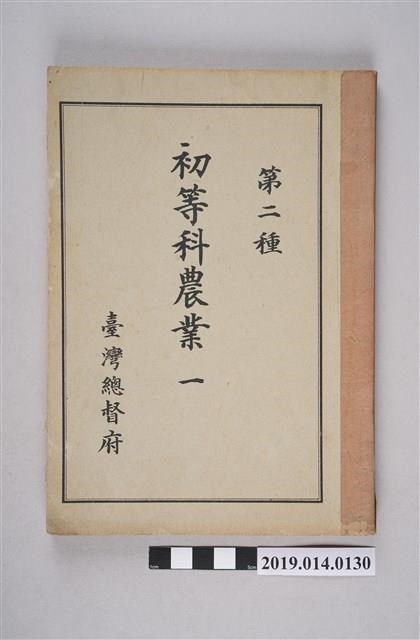 第二種
初等科農業 一
臺灣總督府
2019.014.0130
0cm
5cm